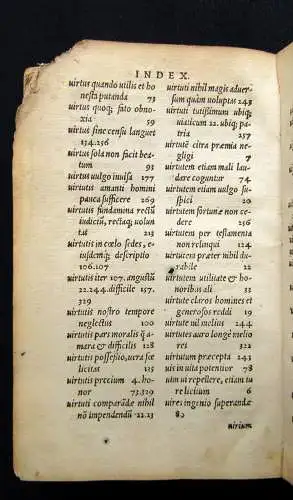 INDEX.
uirtus quando utilis et ho
nesta putanda 73
uirtus quoq; fato obno
xia 59
uirtus sine censu languet
134.256
uirtus sola non facit bea
tum 93
uirtus uulgo inuisa 177
uirtutis amanti homini
pauca sufficere 269
uirtutis fundamina rectũ
iudiciũ, rectaq; uolun
tas 213
uirtutis in cœlo sedes, e
iusdemq; descriptio
106.107
uirtutis iter 107. angustũ
22.244. difficile 157.
329
uirtutem nostro tempore
neglectus 100
uirtutis pars moralis q̃ a
mara & difficilis 128
uirtutis possessio, uera fœ
licitas 135
uirtutis precium 4. ho
nor 73.329
uirtuti comparãdæ nihil
nõ impendendũ 22.23
uirtuti nihil magis aduer
sum quàm uoluptas 243
uirtuti tutissimum ubiq;
uiaticum 22. ubiq; pa
tria 257
uirtutẽ citra præmia ne
gligi 7
uirtutem etiam mali lau
dare coguntur 74
uirtutem etiam uulgo su
spici 20
uirtutem fortunæ non ce
dere 236
uirtutem per testamenta
non relinqui 124
uirtutem præter nihil du
rabile 22
uirtutem utilitate & ho
noribus ali 33
uirtute claros homines et
generosos reddi 19
uirtute nil melius 244
uirtutes auro longè melio
res 32
uirtutum præcepta 243
uis in uita potentior 78
uim ui repellere, etiam fu
re licitum 6
uires ingenio superandæ
80
uirium